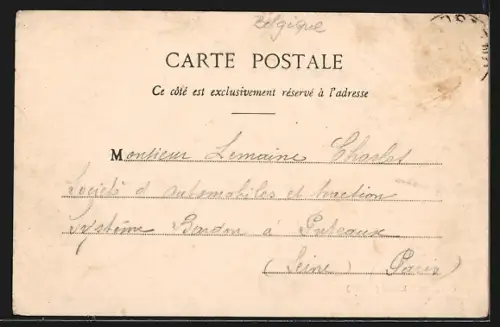 Belgique
CARTE POSTALE
Ce côté est exclusivement réservé à l'adresse
Monsieur Lemaine Charles
Société d automobiles et traction
Système Bardon à Puteaux
(Seine) Paris